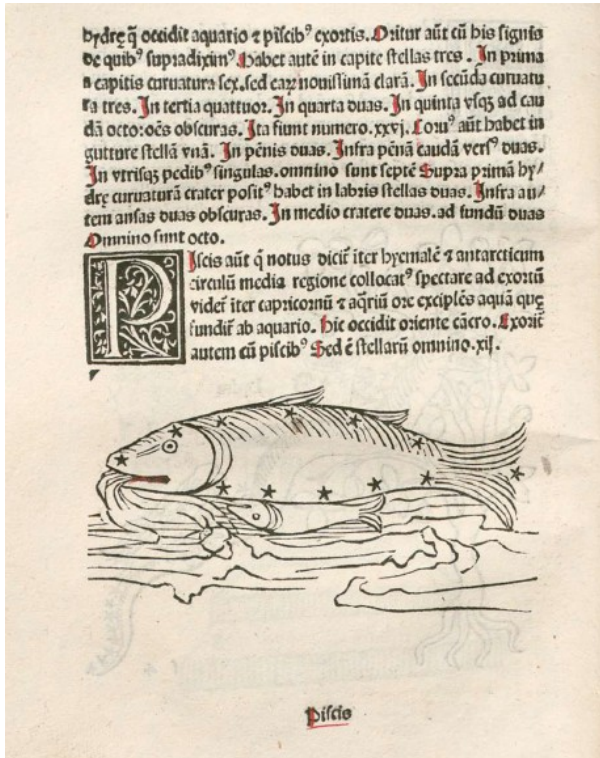 hydrę q̄ occidit aquario ⁊ piſcibꝰ exortis. Oritur aūt cū his ſignis
de quibꝰ ſupradiximꝰ. Habet autē in capite ſtellas tres. In prima
a capitis curuatura ſex. ſed eaꝝ nouiſſimā clarā. In ſecūda curuatu
ra tres. In tertia quattuor. In quarta duas. In quinta vſqꝫ ad cau
dā octo: oēs obſcuras. Ita fiunt numero. xxvj. Coruꝰ aūt habet in
gutture ſtellā vnā. In pēnis duas. Infra pēnā caudā verſꝰ duas.
In vtriſqꝫ pedibꝰ ſingulas. omnino ſunt ſeptē Supra primā hy/
drę curuaturā crater poſitꝰ habet in labris ſtellas duas. Infra au/
tem anſas duas obſcuras. In medio cratere duas. ad fundū duas
Omnino ſunt octo.
PIſcis aūt q̄ notus dicit̄ iter hyemalē ⁊ antarcticum
circulū media regione collocatꝰ ſpectare ad exortū
videt̄ iter capricornū ⁊ aq̄riū ore excipiēs aquā quę
fundit̄ ab aquario. Hic occidit oriente cācro. Exorit̄
autem cū piſcibꝰ Sed ē ſtellarū omnino. xij.
Piſcis